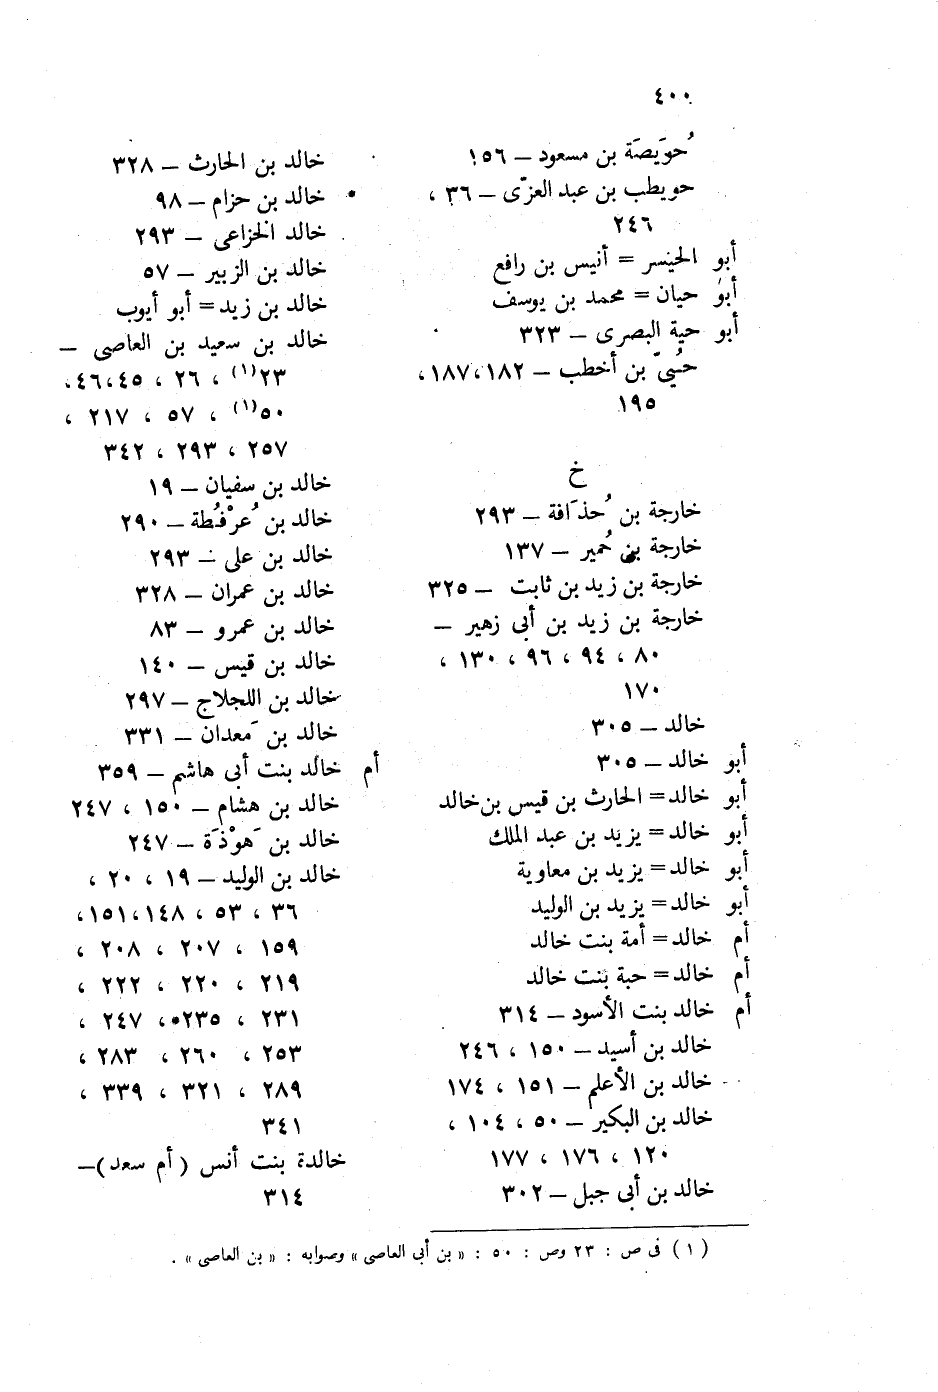 ٤٠٠
حُويَصَة بن مسعود – ١٥٦
حويطب بن عبد العزّى – ٣٦ ،
٢٤٦
أبو الحيسر = أنيس بن رافع
أبو حيان = محمد بن يوسف
أبو حية البصرى – ٣٢٣
حُيىّ بن أخطب – ١٨٢،١٨٧ ،
١٩٥
خ
خارجة بن حُذَافة – ٢٩٣
خارجة بن حُمير – ١٣٧
خارجة بن زيد بن ثابت – ٣٢٥
خارجة بن زيد بن أبى زهير –
٨٠ ، ٩٤ ، ٩٦ ، ١٣٠ ،
١٧٠
خالد – ٣٠٥
أبو خالد – ٣٠٥
أبو خالد = الحارث بن قيس بن خالد
أبو خالد = يزيد بن عبد الملك
أبو خالد = يزيد بن معاوية
أبو خالد = يزيد بن الوليد
أم خالد = أمة بنت خالد
أم خالد = حبة بنت خالد
أم خالد بنت الأسود – ٣١٤
خالد بن أسيد – ١٥٠ ، ٢٤٦
خالد بن الأعلم – ١٥١ ، ١٧٤
خالد بن البكير – ٥٠ ، ١٠٤ ،
١٢٠ ، ١٧٦ ، ١٧٧
خالد بن أبى جبل – ٣٠٢
خالد بن الحارث – ٣٢٨
خالد بن حزام – ٩٨
خالد الخزاعى – ٢٩٣
خالد بن الزبير – ٥٧
خالد بن زيد = أبو أيوب
خالد بن سعيد بن العاصى –
٢٣(١) ، ٢٦ ، ٤٥،٤٦،
٥٠(١) ، ٥٧ ، ٢١٧ ،
٢٥٧ ، ٢٩٣ ، ٣٤٢
خالد بن سفيان – ١٩
خالد بن عُرْفُطة – ٢٩٠
خالد بن على – ٢٩٣
خالد بن عمران – ٣٢٨
خالد بن عمرو – ٨٣
خالد بن قيس – ١٤٠
خالد بن اللجلاج – ٢٩٧
خالد بن مَعدان – ٣٣١
أم خالد بنت أبى هاشم – ٣٥٩
خالد بن هشام – ١٥٠ ، ٢٤٧
خالد بن هَوْذَة – ٢٤٧
خالد بن الوليد – ١٩ ، ٢٠ ،
٣٦ ، ٥٣ ، ١٤٨،١٥١،
١٥٩ ، ٢٠٧ ، ٢٠٨ ،
٢١٩ ، ٢٢٠ ، ٢٢٢ ،
٢٣١ ، ٢٣٥، ٢٤٧ ،
٢٥٣ ، ٢٦٠ ، ٢٨٣ ،
٢٨٩ ، ٣٢١ ، ٣٣٩ ،
٣٤١
خالدة بنت أنس (أم سعد)–
٣١٤
(١) فى ص : ٢٣ وص : ٥٠ : « بن أبى العاصى » وصوابه : « بن العاصى » .